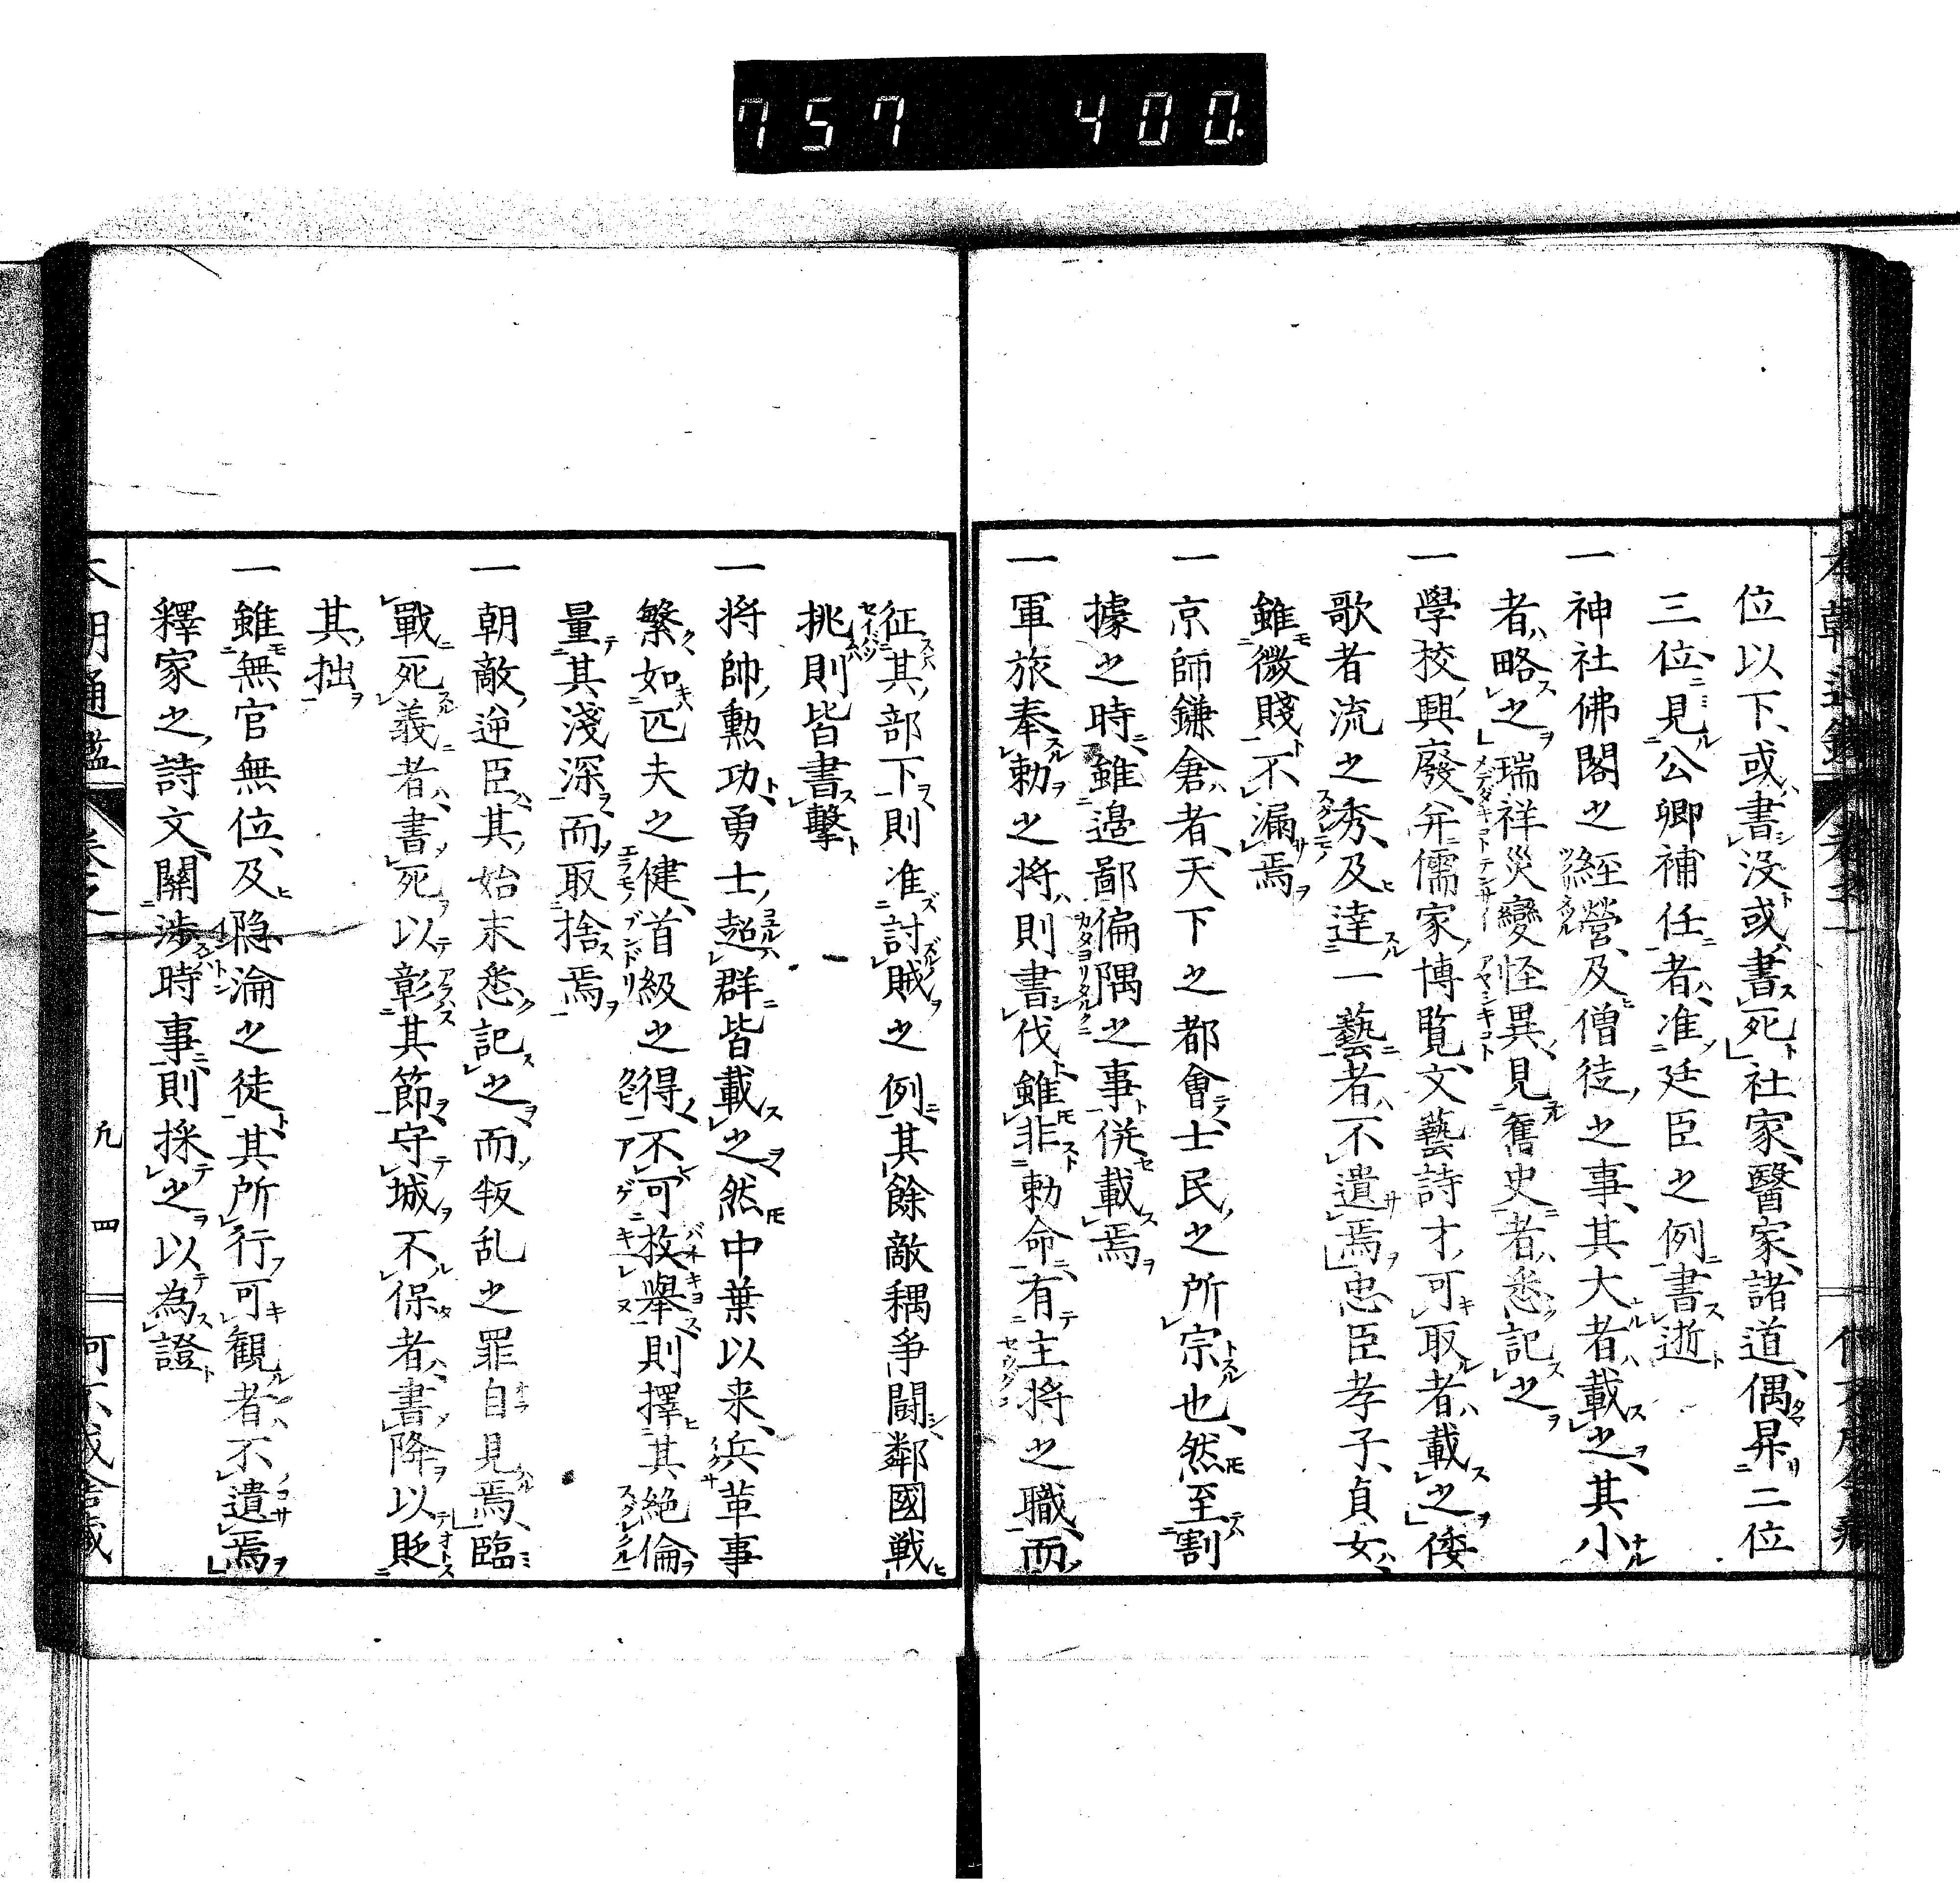 757 400.
位以下、或書没或書死社家、醫家、諸道、偶昇二位
三位見公卿補任者、准廷臣之例書逝
一神社佛閣之経營、及僧徒之事、其大者載之、其小
者、略之瑞祥災變怪異、見舊史者、悉記之
一學校興廢、并儒家博覧、文藝詩才可取者載之倭
歌者流之秀、及達一藝者不遺焉忠臣孝子、貞女
雖微賤不漏焉
一京師鎌倉者、天下之都會、士民之所宗也、然至割
據之時、雖邉鄙偏隅之事併載焉
一軍旅奉勅之将則書伐雖非勅命、有主将之職、而
征其部下、則准討賊之例、其餘敵耦爭闘鄰國戦
挑則皆書擊
一将帥勲功、勇士超群皆載之、然中葉以来、兵革事
繁如匹夫之健、首級之得、不可枚舉則擇其絶倫
量其淺深而取捨焉
一朝敵逆臣、其始末悉記之、而叛乱之罪自見焉、臨
戰死義者、書死以彰其節、守城不保者、書降以貶
其拙
一雖無官無位、及隠淪之徒、其所行可観者、不遺焉
釋家之詩文、關渉時事則採之以為證
本朝通鑑
凡 四